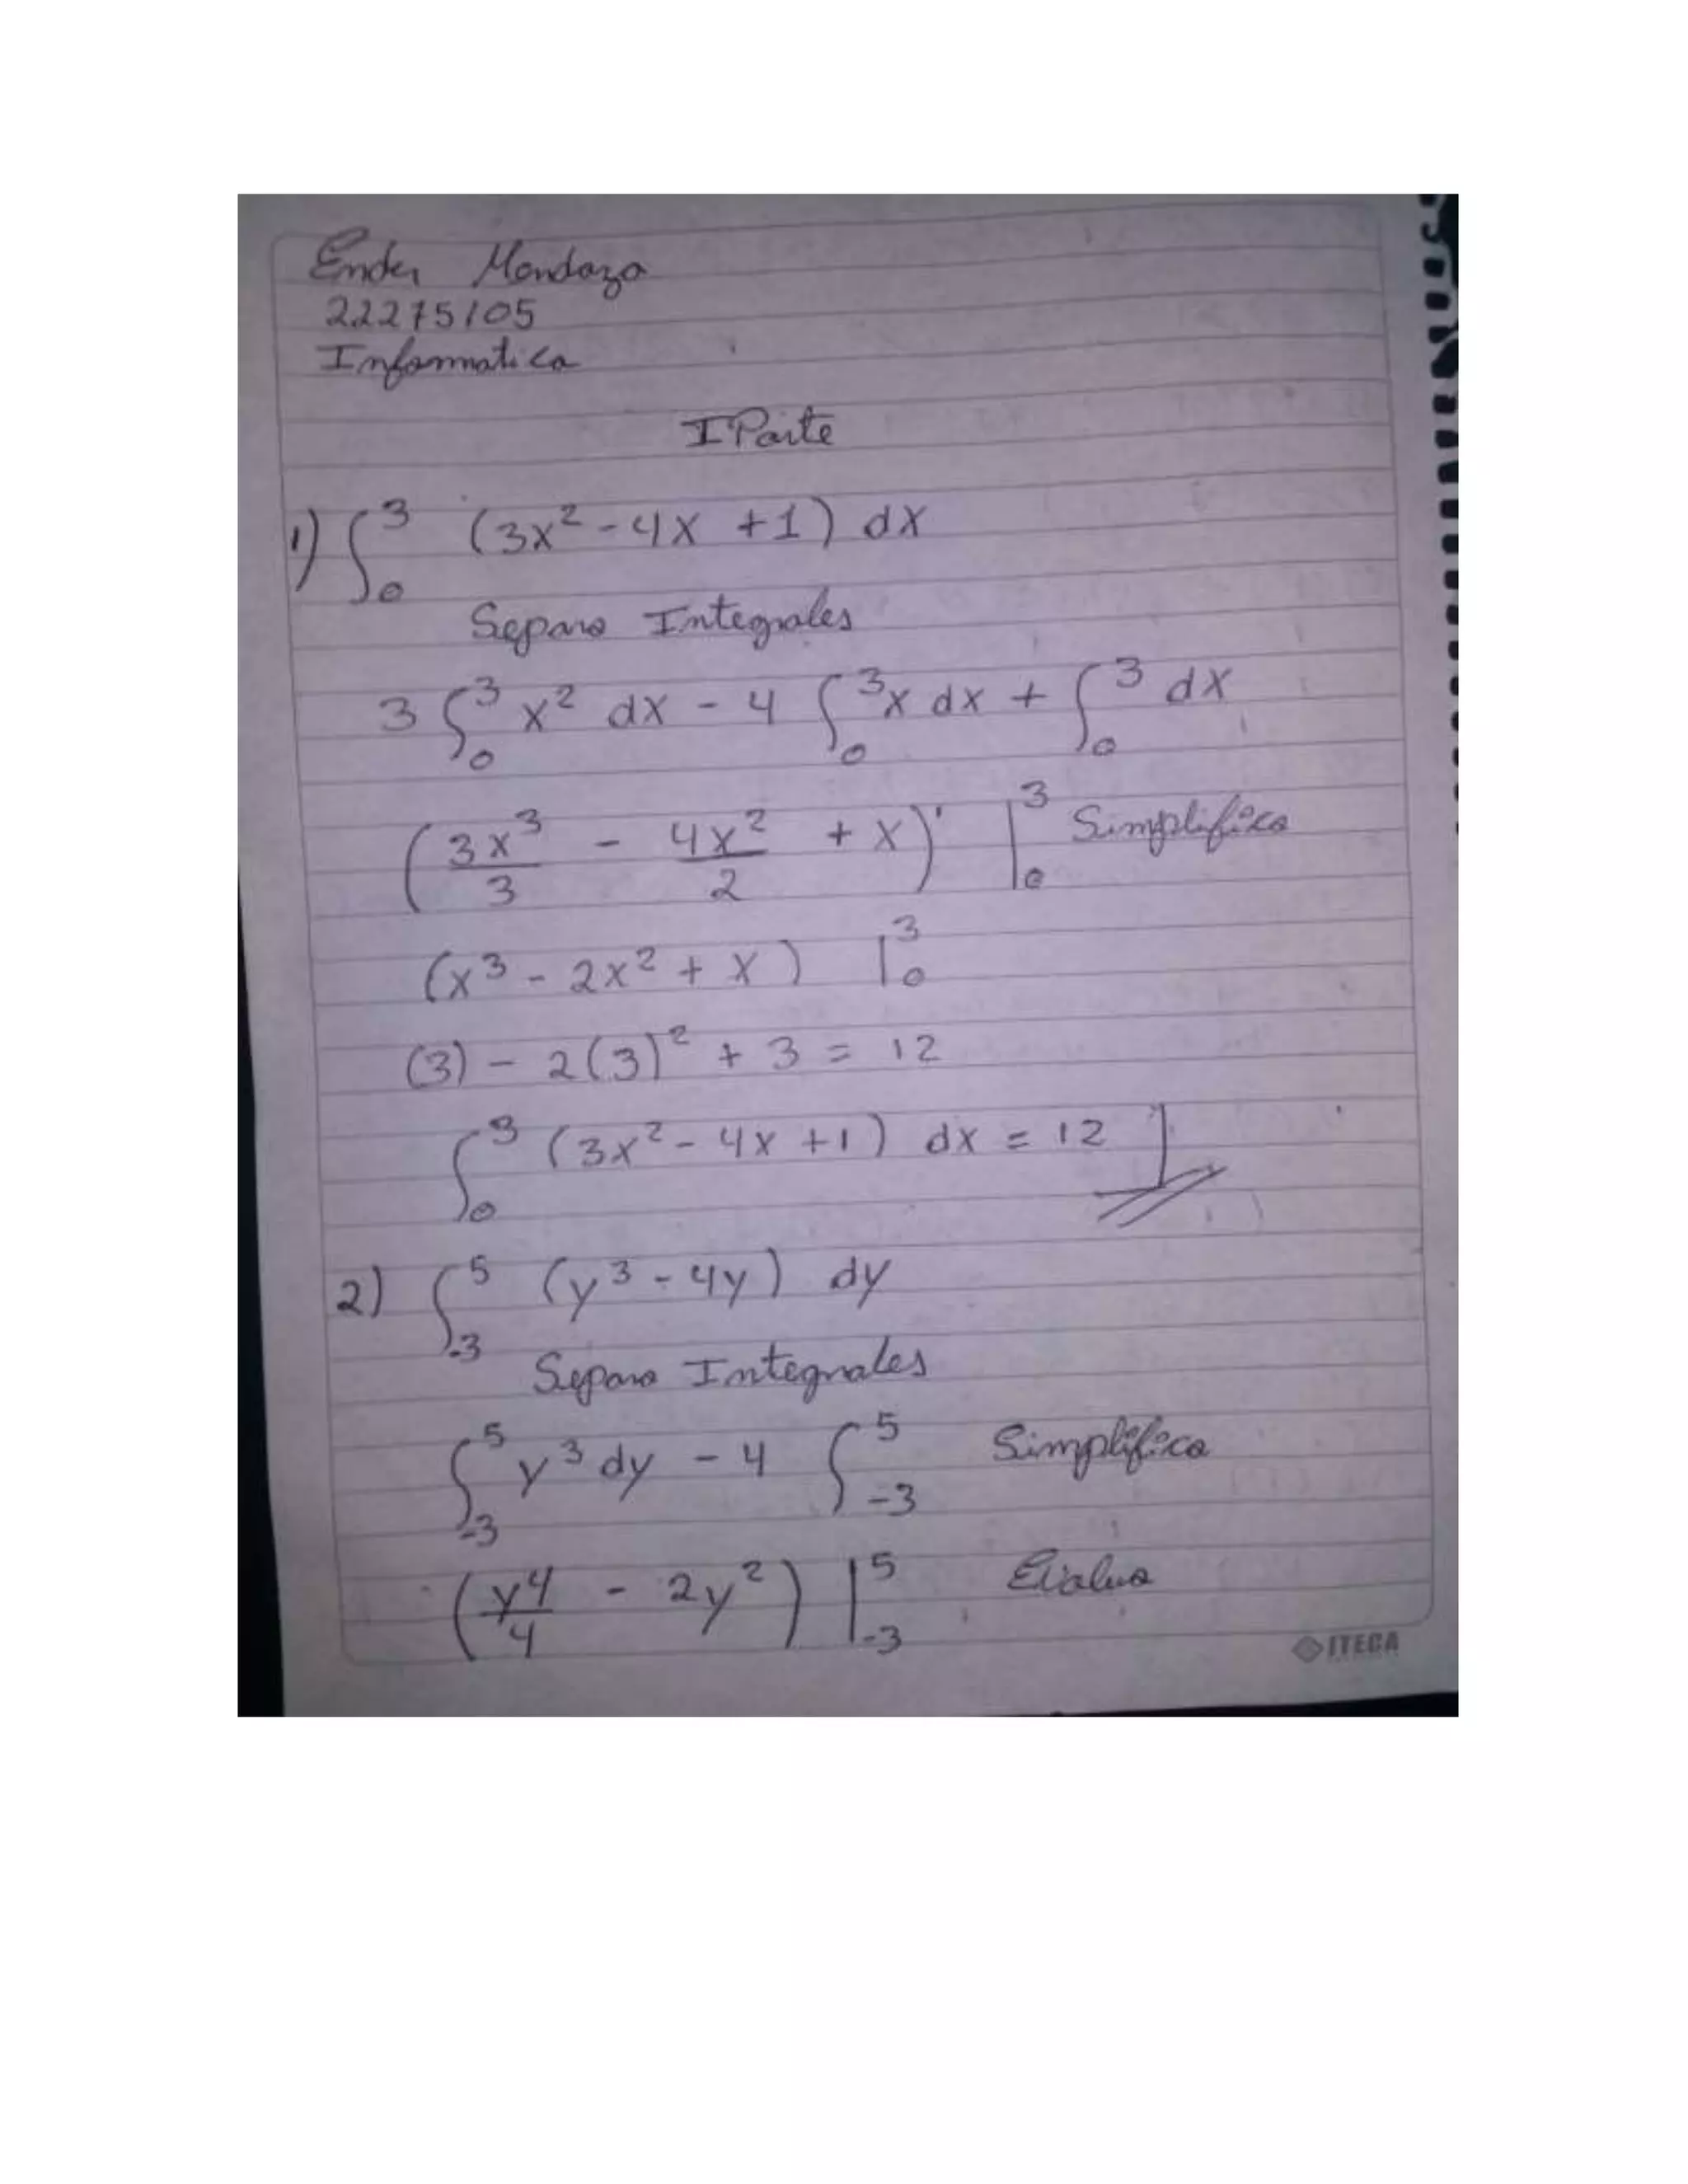 Ender Mendoza
22275105
Informatica
I Parte
1) ∫₀³ (3x² - 4x + 1) dx
Separo Integrales
3 ∫₀³ x² dx - 4 ∫₀³ x dx + ∫₀³ dx
(3x³/3 - 4x²/2 + x) |₀³ Simplifico
(x³ - 2x² + x) |₀³
(3) - 2(3)² + 3 = 12
∫₀³ (3x² - 4x + 1) dx = 12
2) ∫₋₃⁵ (y³ - 4y) dy
Separo Integrales
∫₋₃⁵ y³ dy - 4 ∫₋₃⁵ Simplifico
(y⁴/4 - 2y²) |₋₃⁵ Evaluo
ITECA